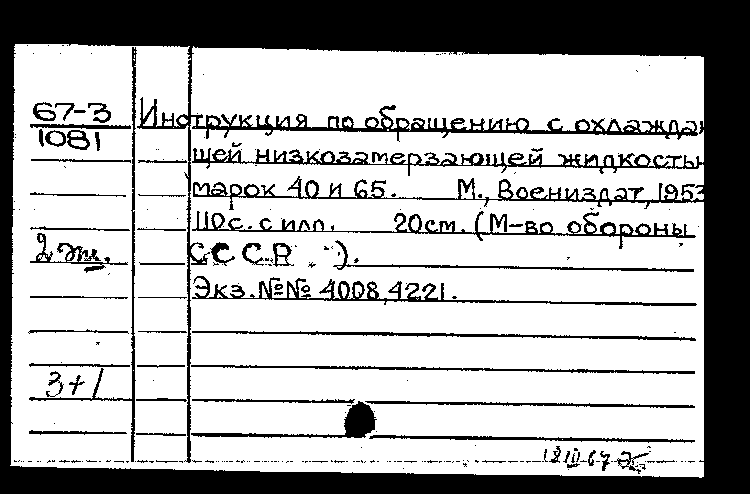 67-3
1081
Инструкция по обращению с охлаждаю
щей низкозамерзающей жидкостью
марок 40 и 65. М., Воениздат, 1953
110с. с илл. 20см. (М-во обороны
2 экз. СССР).
Экз. №№ 4008, 4221.
3+1
18 III 67